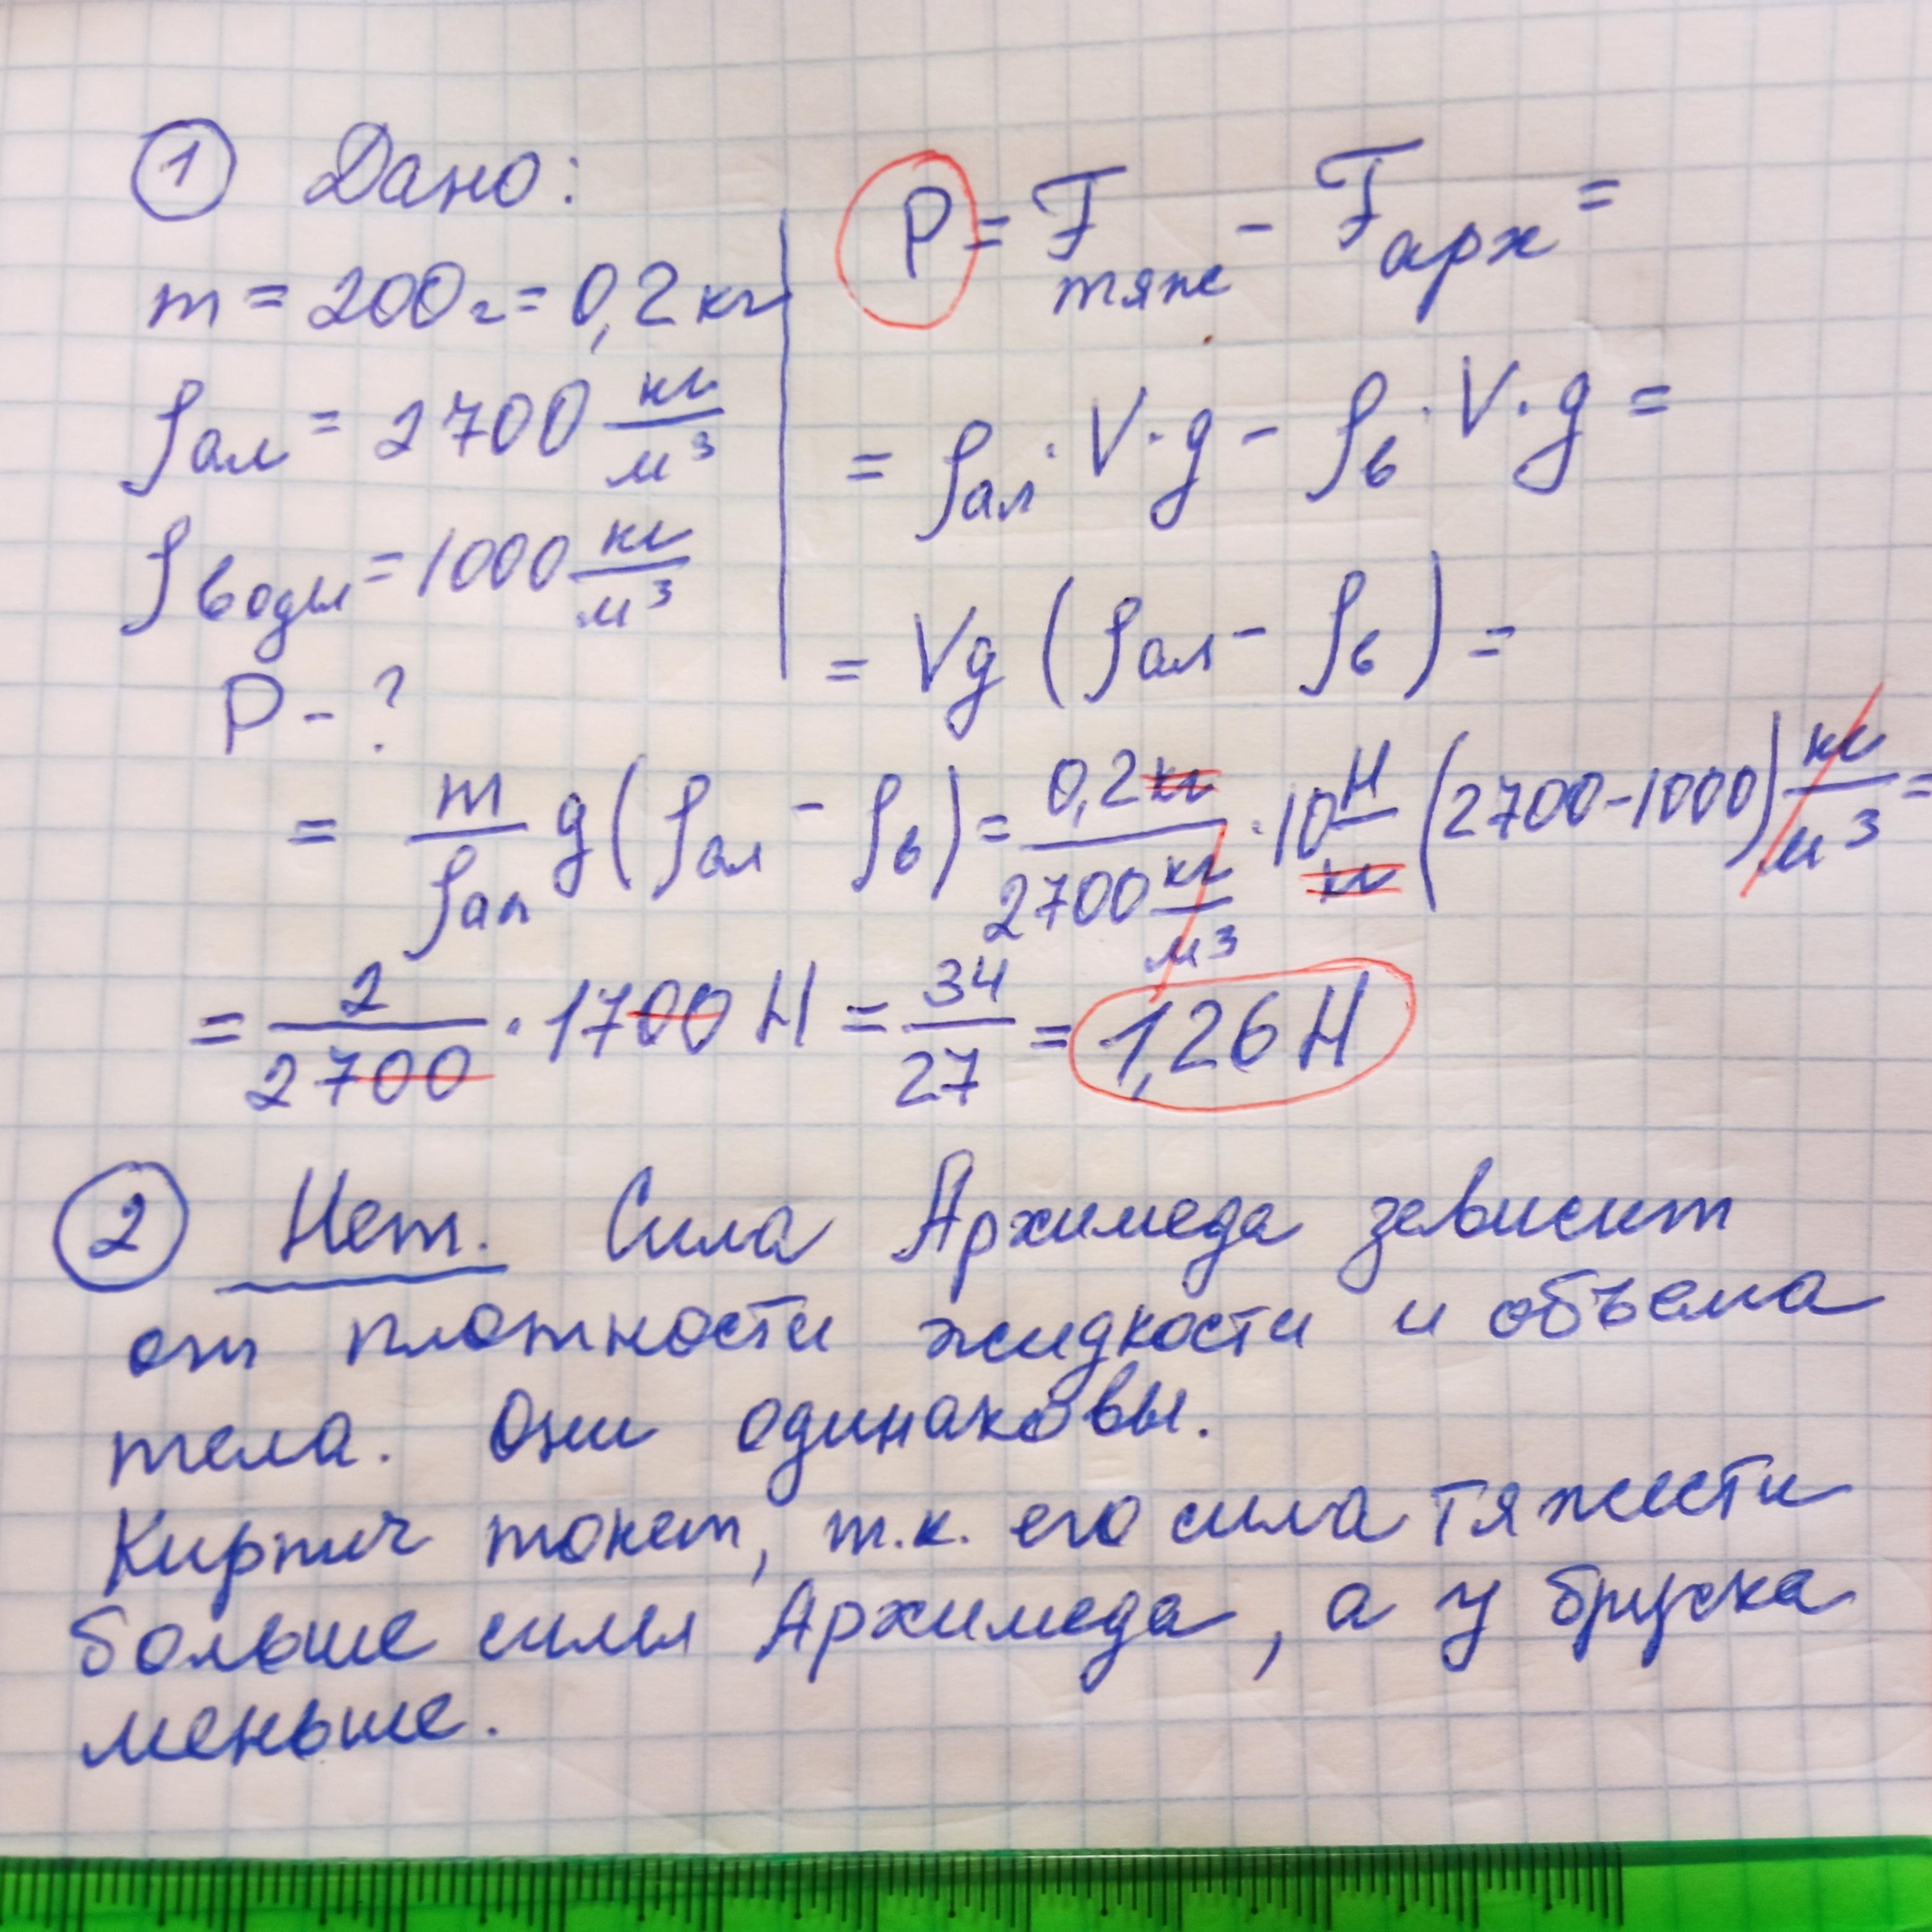 1 Дано:
m = 200г = 0,2 кг
ρал = 2700 кг/м³
ρводы = 1000 кг/м³
P - ?
P = Fтяж - Fарх =
= ρал · V · g - ρв · V · g =
= Vg (ρал - ρв) =
= m/ρал g (ρал - ρв) = 0,2 кг / 2700 кг/м³ · 10 Н/кг (2700-1000) кг/м³ =
= 2/2700 · 1700 Н = 34/27 = 1,26 Н
2 Нет. Сила Архимеда зависит
от плотности жидкости и объема
тела. Они одинаковы.
Кирпич тонет, т.к. его сила тяжести
больше силы Архимеда, а у бруска
меньше.